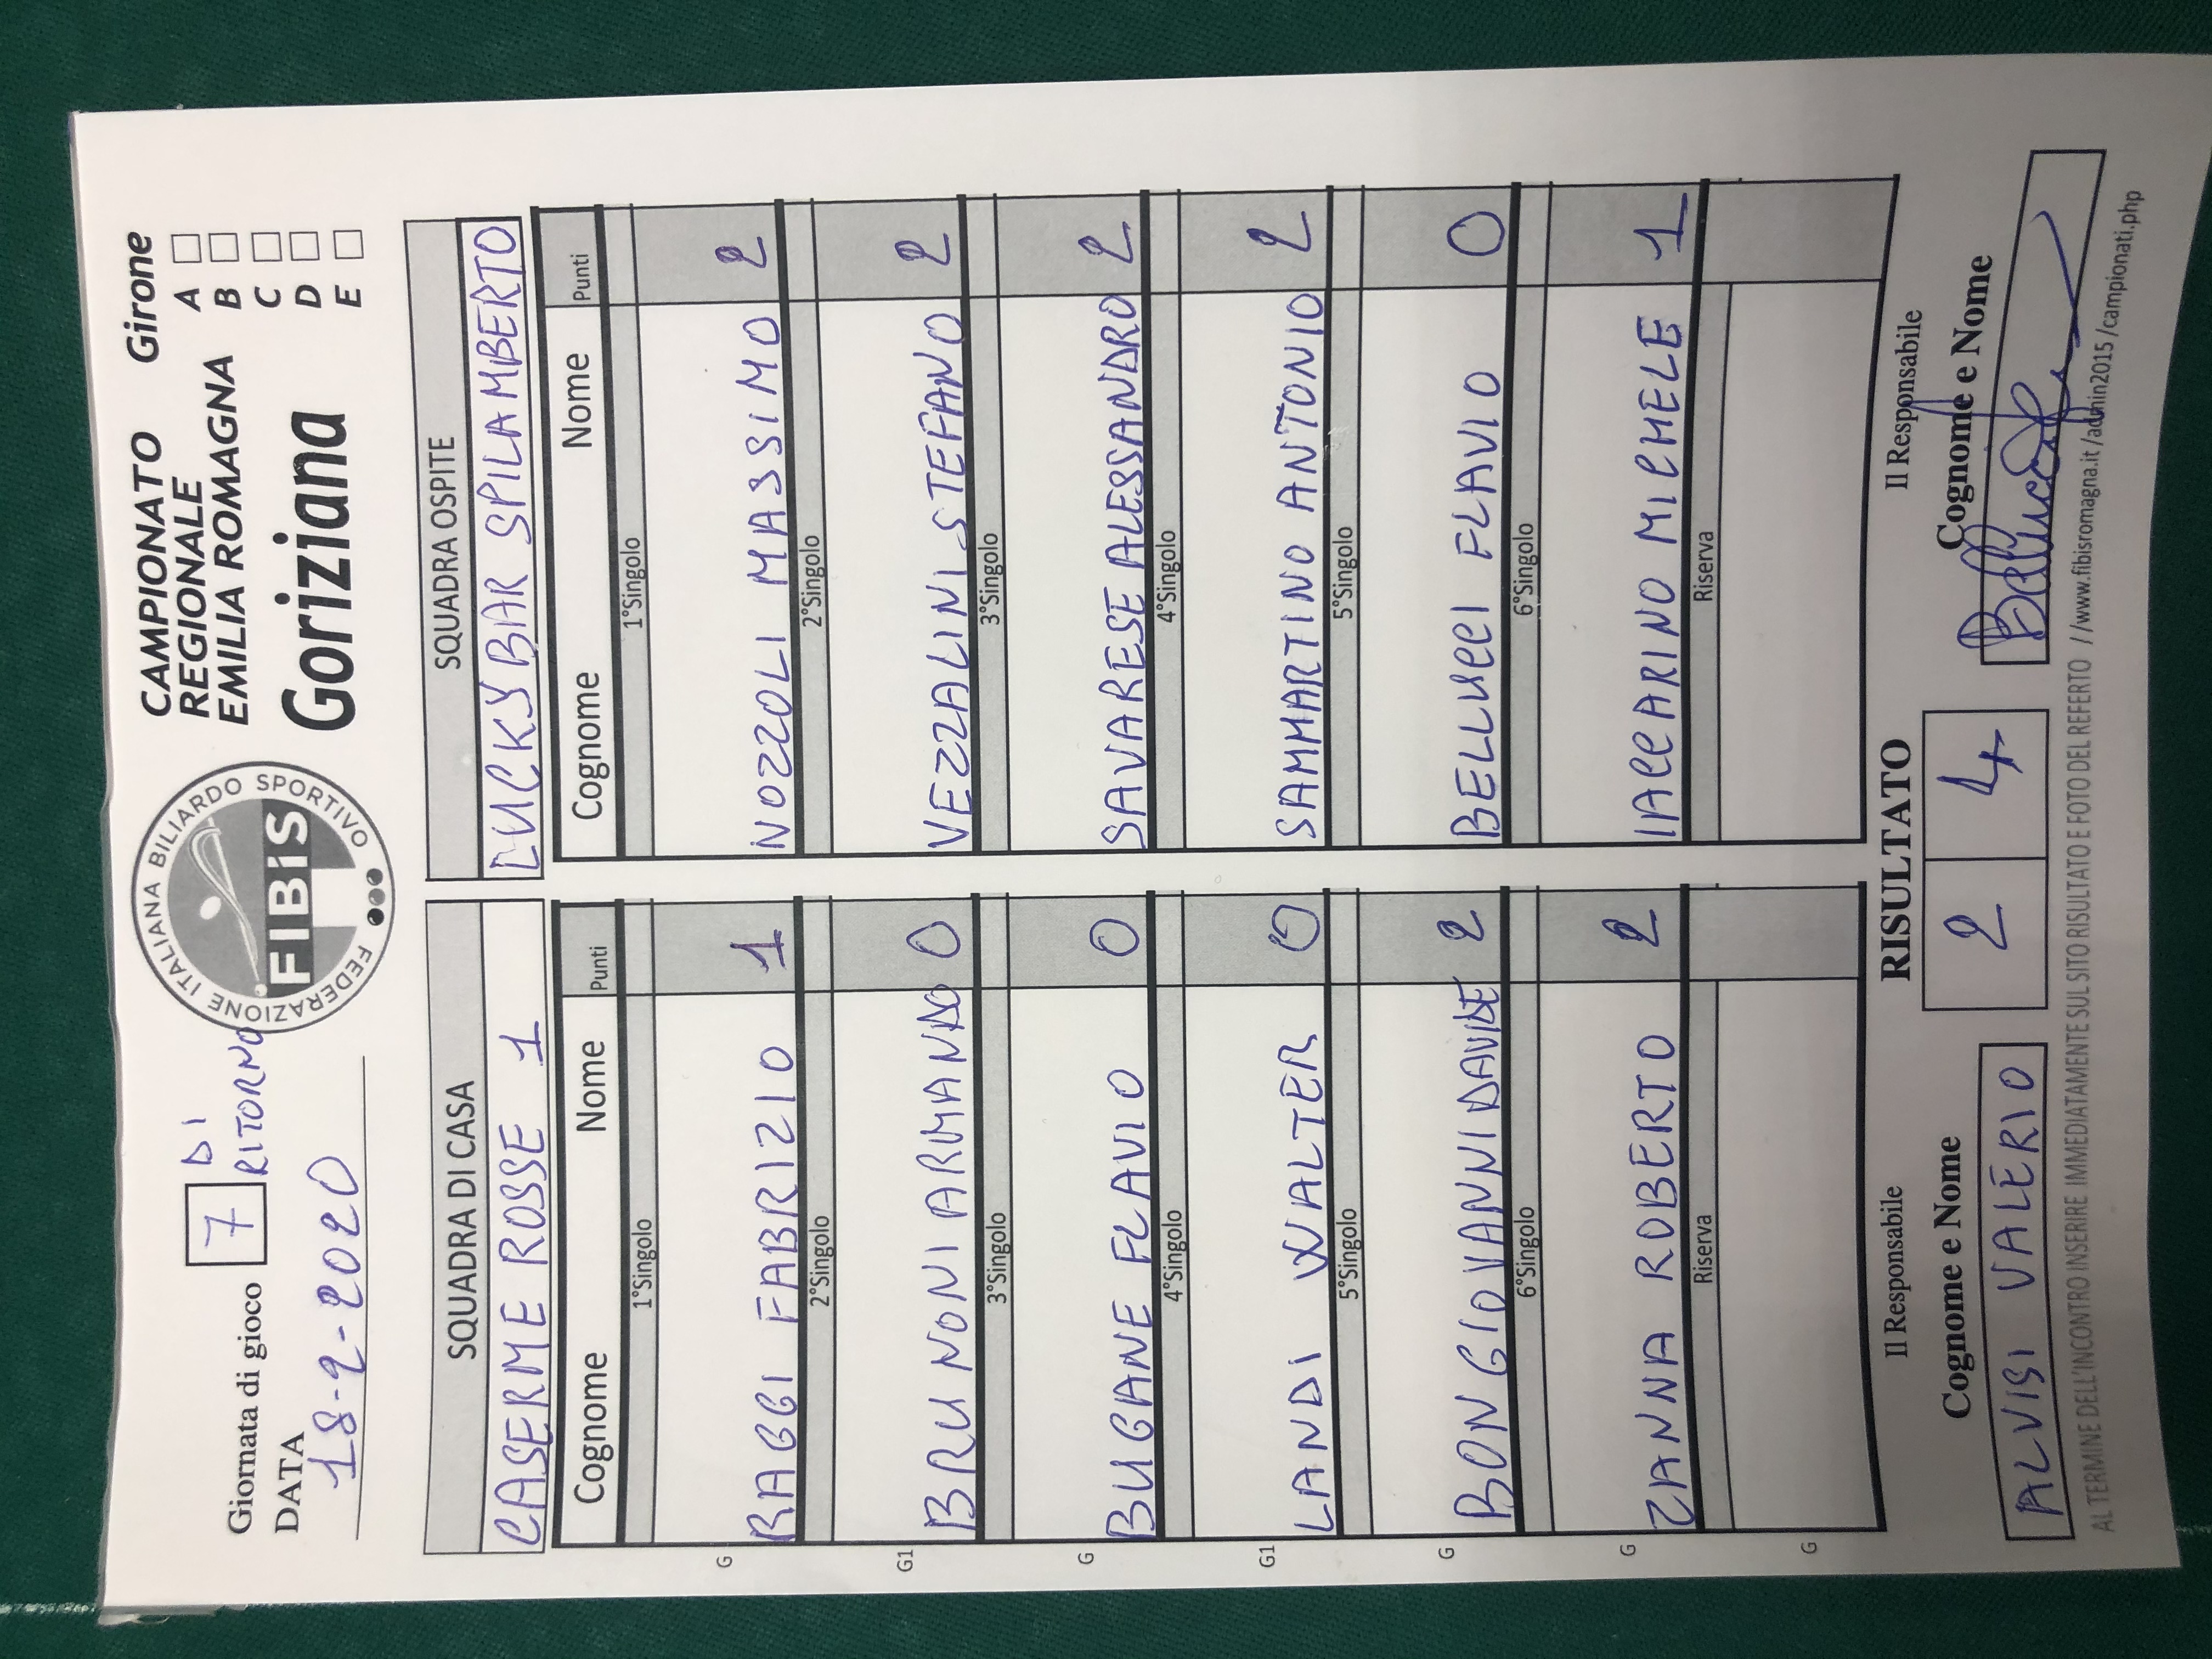 Giornata di gioco 7 DI RITORNO
DATA
18-2-2020
FEDERAZIONE ITALIANA BILIARDO SPORTIVO
FIBiS
CAMPIONATO
REGIONALE
EMILIA ROMAGNA
Goriziana
Girone
A
B
C
D
E
SQUADRA DI CASA
CASERME ROSSE 1
Cognome Nome Punti
1°Singolo
G RAGGI FABRIZIO 1
2°Singolo
G1 BRUNONI ARMANDO 0
3°Singolo
G BUGANE FLAVIO 0
4°Singolo
G1 LANDI WALTER 0
5°Singolo
G BONGIOVANNI DAVIDE 2
6°Singolo
G ZANNA ROBERTO 2
Riserva
G
SQUADRA OSPITE
LUCKY BAR SPILAMBERTO
Cognome Nome Punti
1°Singolo
NOZZOLI MASSIMO 2
2°Singolo
VEZZALINI STEFANO 2
3°Singolo
SAVARESE ALESSANDRO 2
4°Singolo
SAMMARTINO ANTONIO 2
5°Singolo
BELLUCCI FLAVIO 0
6°Singolo
IACCARINO MICHELE 1
Riserva
Il Responsabile
Cognome e Nome
ALVISI VALERIO
RISULTATO
2 4
Il Responsabile
Cognome e Nome
AL TERMINE DELL'INCONTRO INSERIRE IMMEDIATAMENTE SUL SITO RISULTATO E FOTO DEL REFERTO //www.fibisromagna.it /admin2015 /campionati.php